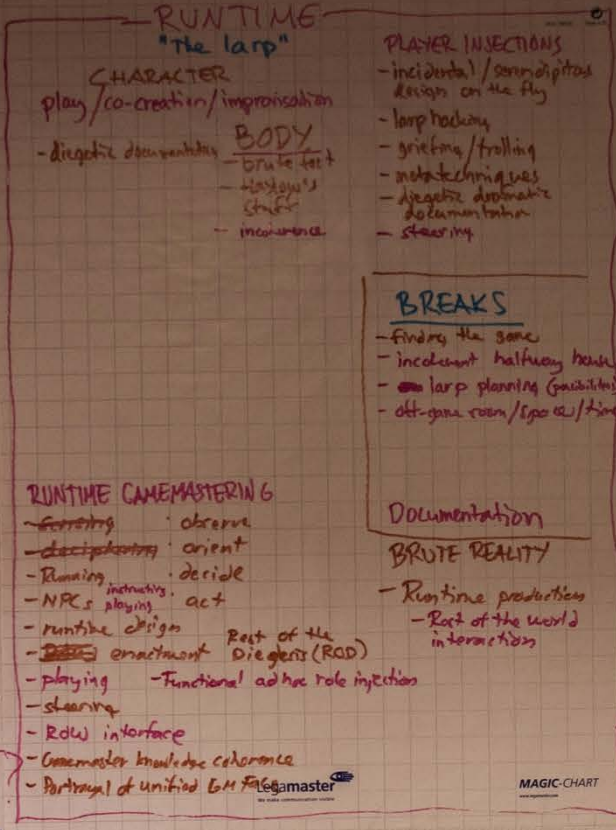 RUNTIME
"The larp"
CHARACTER
play/co-creation/improvisation
- diegetic documentation
BODY
- brute fact
- Maslow's
stuff
- incoherence
PLAYER INJECTIONS
- incidental/serendipitous
design on the fly
- larp hacking
- griefing/trolling
- metatechniques
- diegetic dramatic
documentation
- steering
BREAKS
- finding the game
- incoherent halfway house
- larp planning (possibilities)
- off-game room/space/time
Documentation
BRUTE REALITY
- Runtime production
- Rest of the world
interaction
RUNTIME GAMEMASTERING
- sensing · observe
- deciphering · orient
- Running · decide
- NPCs instructing playing · act
- runtime design
- enactment Rest of the
Diegesis (ROD)
- playing - Functional ad hoc role injection
- steering
- ROW interface
- Gamemaster knowledge coherence
- Portrayal of unified GM Face
Legamaster
We make communication visible
MAGIC-CHART
www.legamaster.com